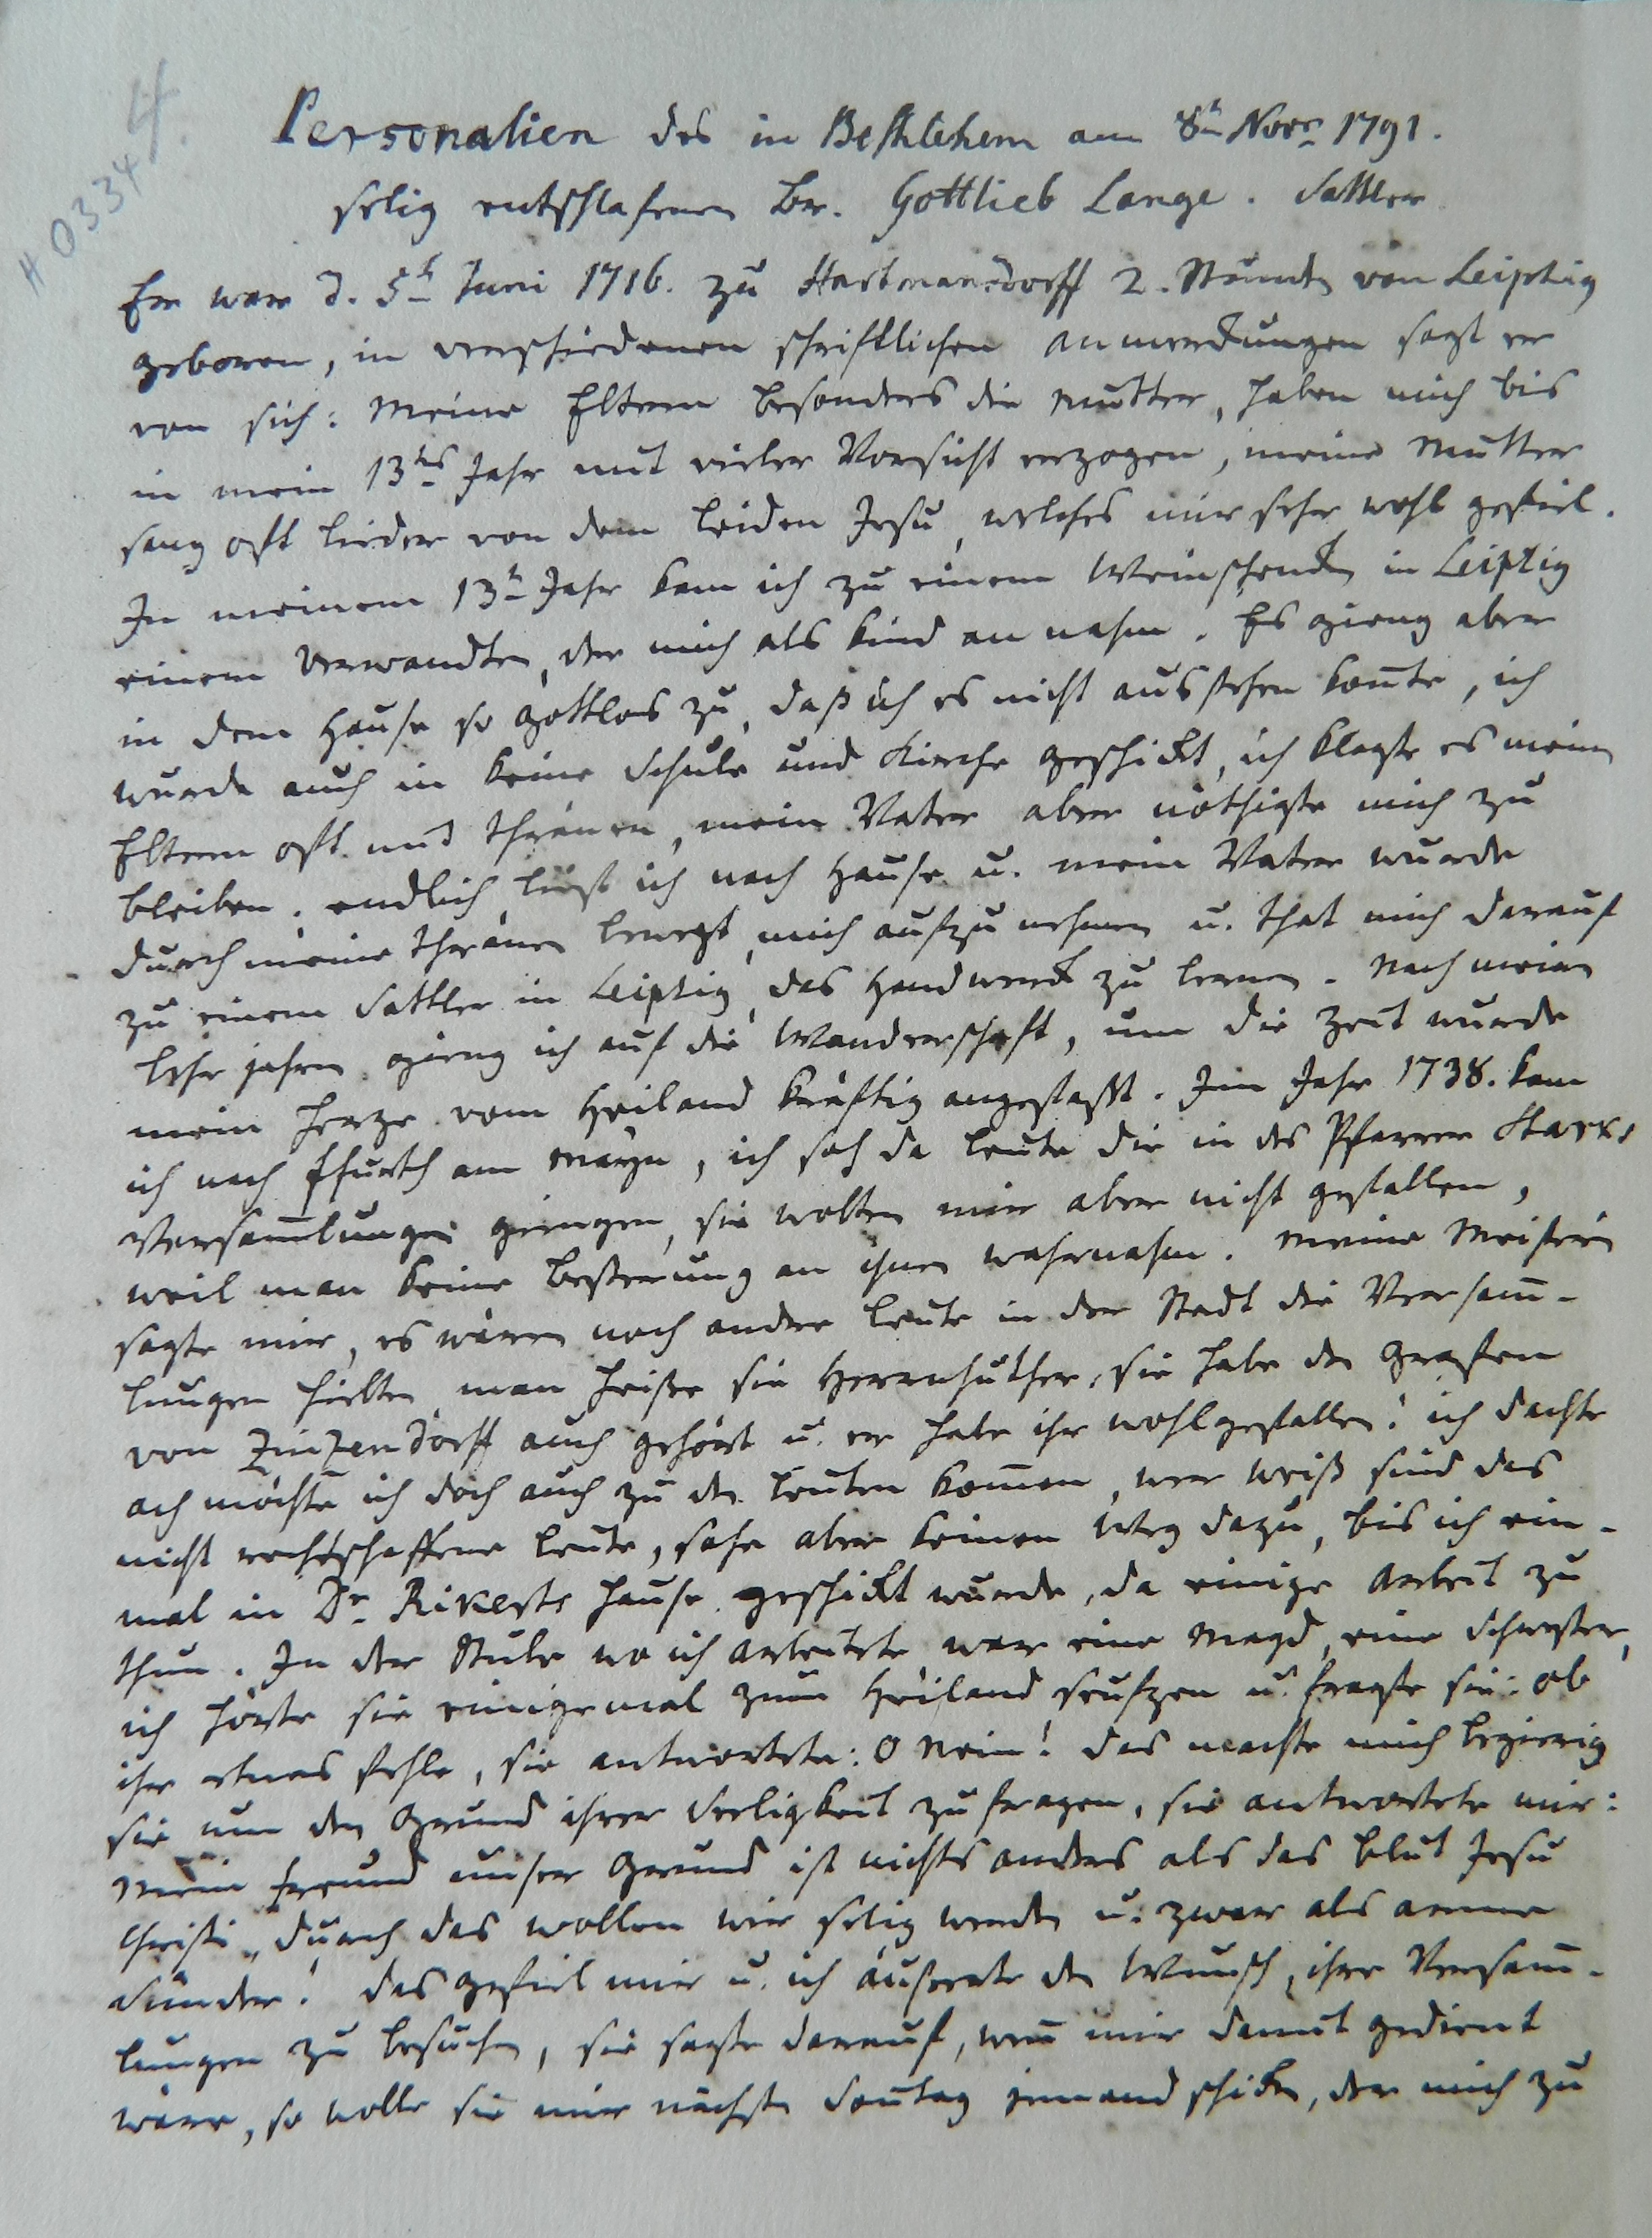 H 0334 4.
Personalien des in Bethlehem am 8n Novr 1791.
selig entschlafenen Br. Gottlieb Lange. Sattler
Er war d. 5n Juni 1716. zu Hartmansdorff 2. Stunden von Leiptzig
geboren, in verschiedenen schriftlichen anmerckungen sagt er
von sich: Meine Eltern besonders die Mutter, haben mich bis
in mein 13tes Jahr mit vieler Vorsicht erzogen, meine Mutter
sang oft lieder von dem leiden Jesu, welches mir sehr wohl gefiel.
In meinem 13n Jahr kam ich zu einem Weinschencken in Leiptzig
einem Verwandten, der mich als kind an nahm. Es gieng aber
in dem Hause so gottlos zu, daß ich es nicht ausstehen konte, ich
wurde auch in keine Schule und Kirche geschickt, ich klagte es mein
Eltern oft mit thränen, mein Vater aber nöthigte mich zu
bleiben. endlich lief ich nach Hause u. mein Vater wurde
durch meine thränen bewegt, mich aufzu nehmen u. that mich darauf
zu einem Sattler in Leiptzig, das Handwerck zu lernen. Nach meinen
lehr jahren gieng ich auf die Wanderschaft, um die Zeit wurde
mein Herze vom Heiland kräftig angefaßt. Im Jahr 1738. kam
ich nach Ffurth am Mayn, ich sah da leute die in des Pfarrer Starks
Versamlungen giengen, sie wolten mir aber nicht gefallen,
weil man keine besserung an ihnen wahrnahm. Meine Meisterin
sagte mir, es wären noch andere leute in der Stadt die Versam-
lungen hielten, man heiße sie Herrnhuther, sie habe den Grafen
von Zinzendorff auch gehört u. er habe ihr wohlgefallen! ich dachte
ach möchte ich doch auch zu den leuten komen, wer weiß sind das
nicht rechtschaffene leute, sahe aber keinen Weg dazu, bis ich ein-
mal in Dr. Rikerts Hause geschickt wurde, da einige arbeit zu
thun. In der Stube wo ich arbeitete war eine Magd, eine Schwester,
ich hörte sie einigemal zum Heiland seufzen u. fragte sie: ob
ihr etwas fehle, sie antwortete: O Nein! das machte mich begierig
sie um den Grund ihrer Seeligkeit zu fragen, sie antwortete mir:
Mein freund unser Grund ist nichts anders als das blut Jesu
Christi, durch das wollen wir selig werden u. zwar als arme
Sünder! das gefiel mir u. ich äuserte den Wunsch, ihre Versam-
lungen zu besuchen, sie sagte darauf, wen mir damit gedient
wäre, so wolle sie mir nächsten Sontag jemand schicken, der mich zu